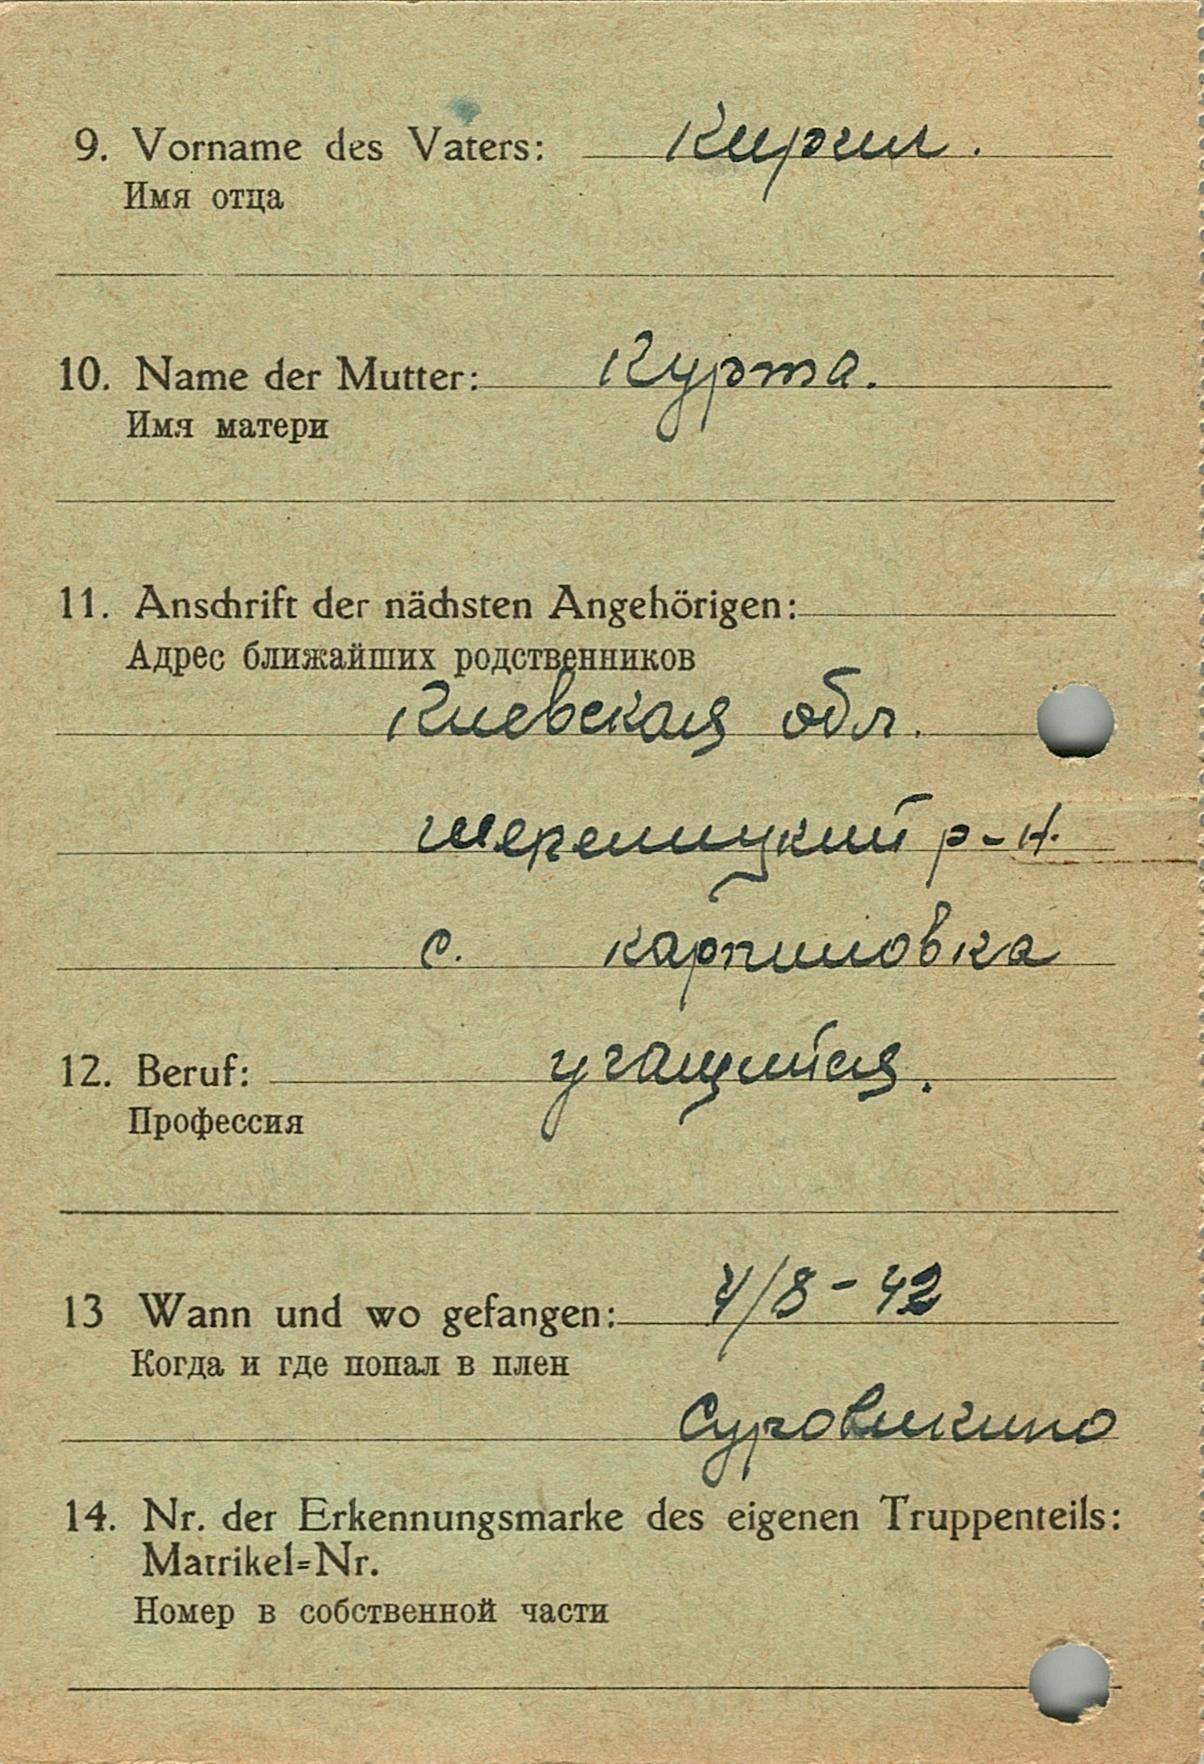 9. Vorname des Vaters: Кирил.
Имя отца
10. Name der Mutter: Курта.
Имя матери
11. Anschrift der nächsten Angehörigen:
Адрес ближайших родственников
Киевская обл.
р-н.
с. карпиловка
12. Beruf: учащийся.
Профессия
13 Wann und wo gefangen: 4/8-42
Когда и где попал в плен
Суровикино
14. Nr. der Erkennungsmarke des eigenen Truppenteils:
Matrikel=Nr.
Номер в собственной части